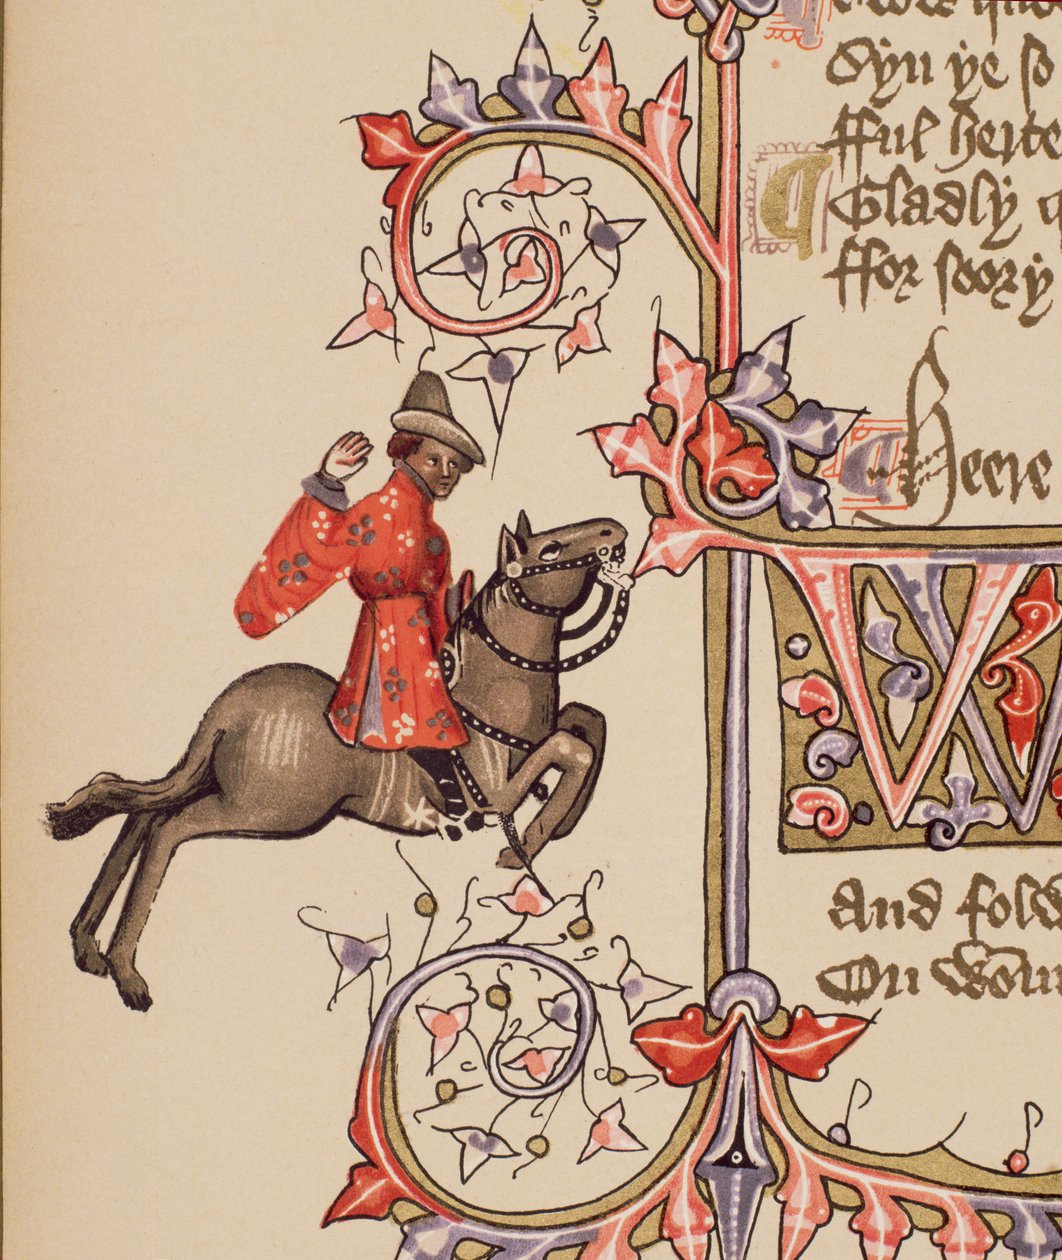 Syn ye so
fful herte
Gladly
ffor soory
Heere
W
And fold
On wom